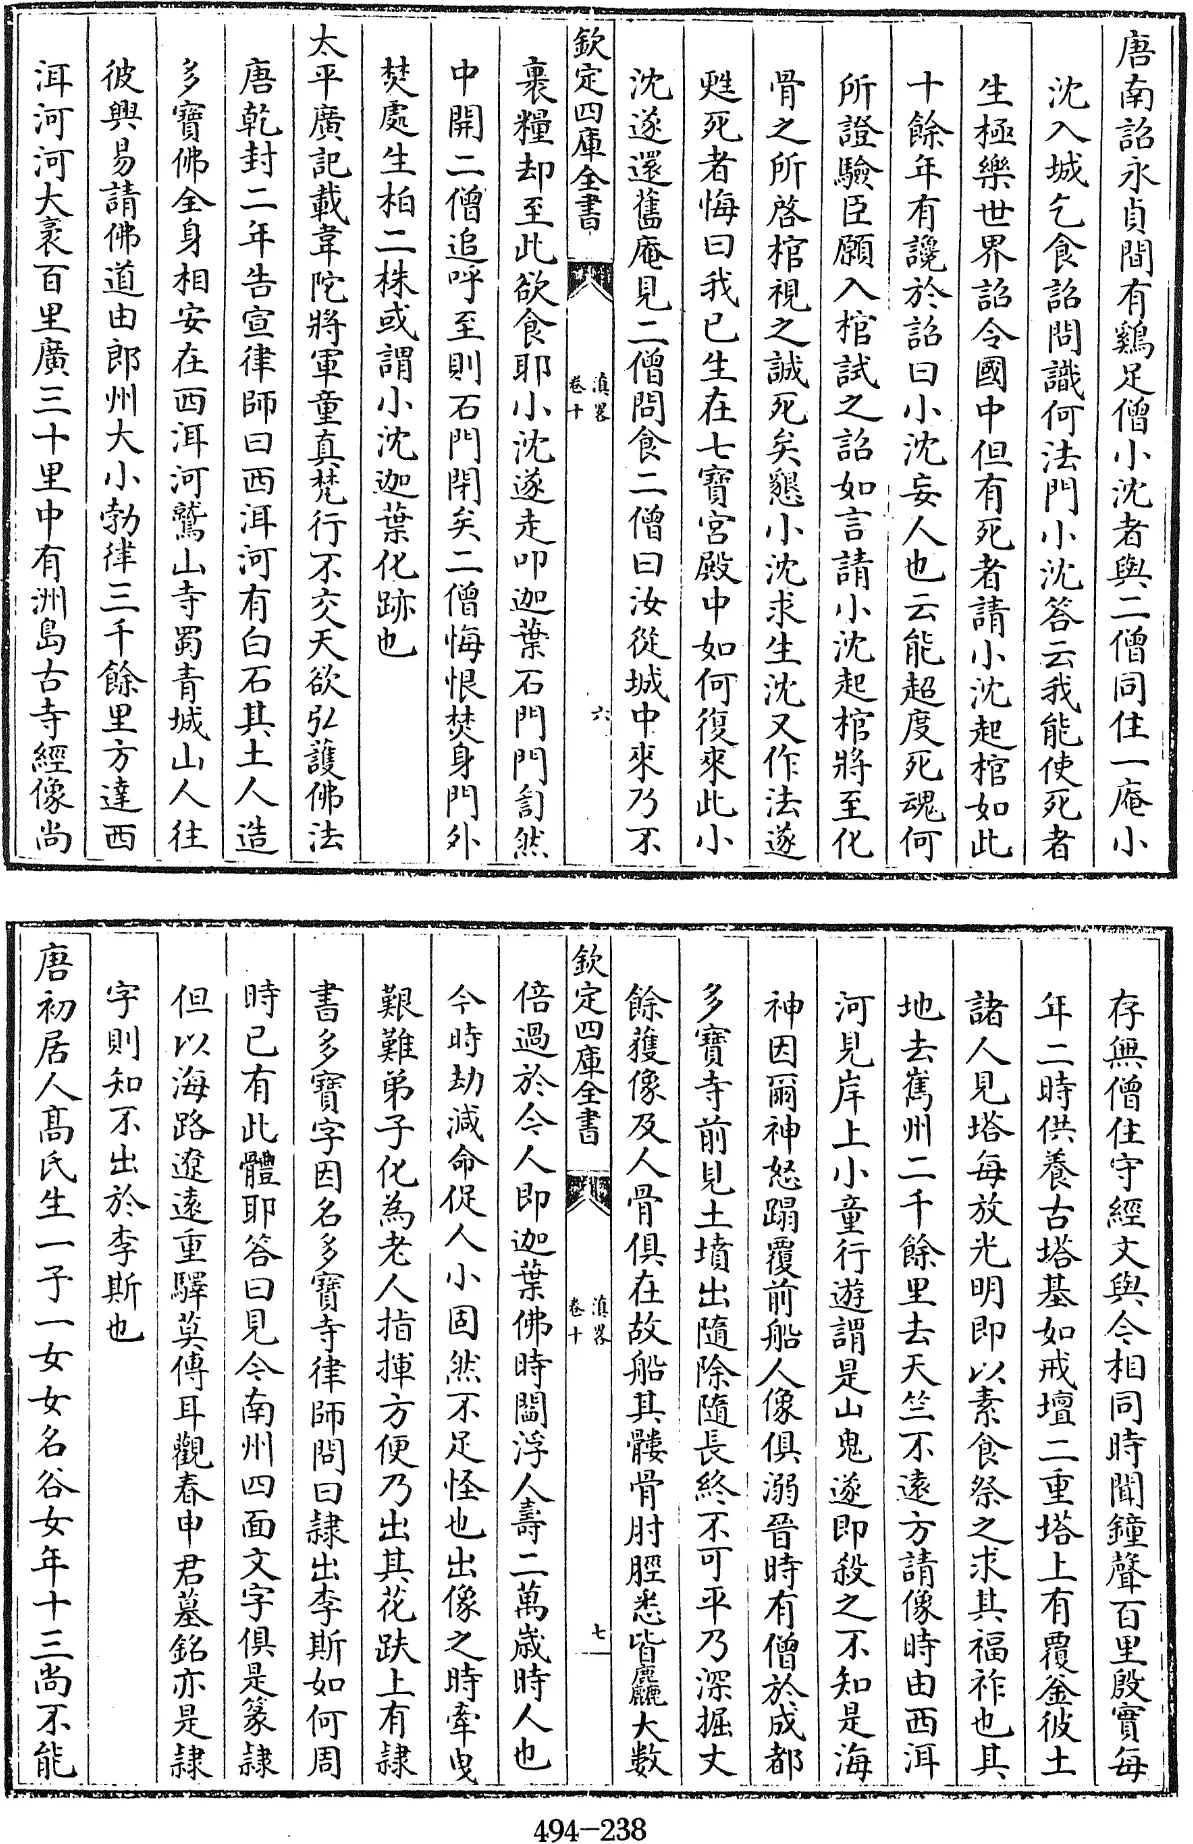 唐南詔永貞間有鷄足僧小沈者與二僧同住一庵小
沈入城乞食詔問識何法門小沈答云我能使死者
生極樂世界詔令國中但有死者請小沈起棺如此
十餘年有讒於詔曰小沈妄人也云能超度死魂何
所證驗臣願入棺試之詔如言請小沈起棺將至化
骨之所啓棺視之誠死矣懇小沈求生沈又作法遂
甦死者悔曰我已生在七寶宮殿中如何復來此小
沈遂還舊庵見二僧問食二僧曰汝從城中來乃不
欽定四庫全書
滇畧
卷十
六
裹糧却至此欲食耶小沈遂走叩迦葉石門門訇然
中開二僧追呼至則石門閉矣二僧悔恨焚身門外
焚處生柏二株或謂小沈迦葉化跡也
太平廣記載韋陀將軍童真梵行不交天欲弘護佛法
唐乾封二年告宣律師曰西洱河有白石其土人造
多寶佛全身相安在西洱河鷲山寺蜀青城山人往
彼興易請佛道由郎州大小勃律三千餘里方達西
洱河河大袤百里廣三十里中有洲島古寺經像尚
存無僧住守經文與今相同時聞鐘聲百里殷實每
年二時供養古塔基如戒壇二重塔上有覆釜彼土
諸人見塔每放光明即以素食祭之求其福祚也其
地去嶲州二千餘里去天竺不遠方請像時由西洱
河見岸上小童行遊謂是山鬼遂即殺之不知是海
神因爾神怒蹋覆前船人像俱溺晉時有僧於成都
多寶寺前見土墳出隨除隨長終不可平乃深掘丈
餘獲像及人骨俱在故船其髏骨肘脛悉皆麤大數
欽定四庫全書
滇畧
卷十
七
倍過於今人即迦葉佛時閻浮人壽二萬歲時人也
今時劫減命促人小固然不足怪也出像之時牽曳
艱難弟子化為老人指揮方便乃出其花趺上有隸
書多寶字因名多寶寺律師問曰隸出李斯如何周
時已有此體耶答曰見今南州四面文字俱是篆隸
但以海路遼遠重驛莫傳耳觀春申君墓銘亦是隸
字則知不出於李斯也
唐初居人高氏生一子一女女名谷女年十三尚不能
494-238